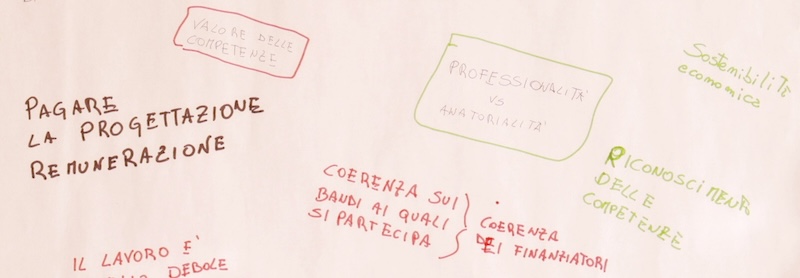 VALORE DELLE
COMPETENZE
PAGARE
LA PROGETTAZIONE
REMUNERAZIONE
PROFESSIONALITA'
VS
ANATORIALITA'
Sostenibilità
economica
COERENZA SUI
BANDI AI QUALI
SI PARTECIPA
COERENZA
DEI FINANZIATORI
RICONOSCIMENTO
DELLE
COMPETENZE
IL LAVORO E'
DEBOLE